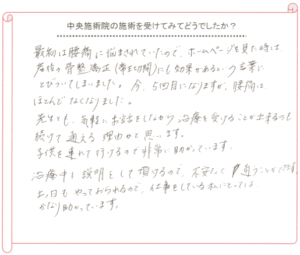 中央施術院の施術を受けてみてどうでしたか？
最初は腰痛に悩まされていたので、ホームページを見た時は、
産後の骨盤矯正(帝王切開)にも効果があるいう言葉に
とびついてしまいました。今、5回目になりますが、腰痛は
ほとんどなくなりました。
先生とも、気軽にお話をしながら治療を受けることが出来るのも
続けて通える理由かと思います。
子供を連れて行けるので非常に助かっています。
治療中も説明をして頂けるので、不安なく通うことができ、
土日もやっておられるので、仕事をしている私にとっては
かなり助かっています。